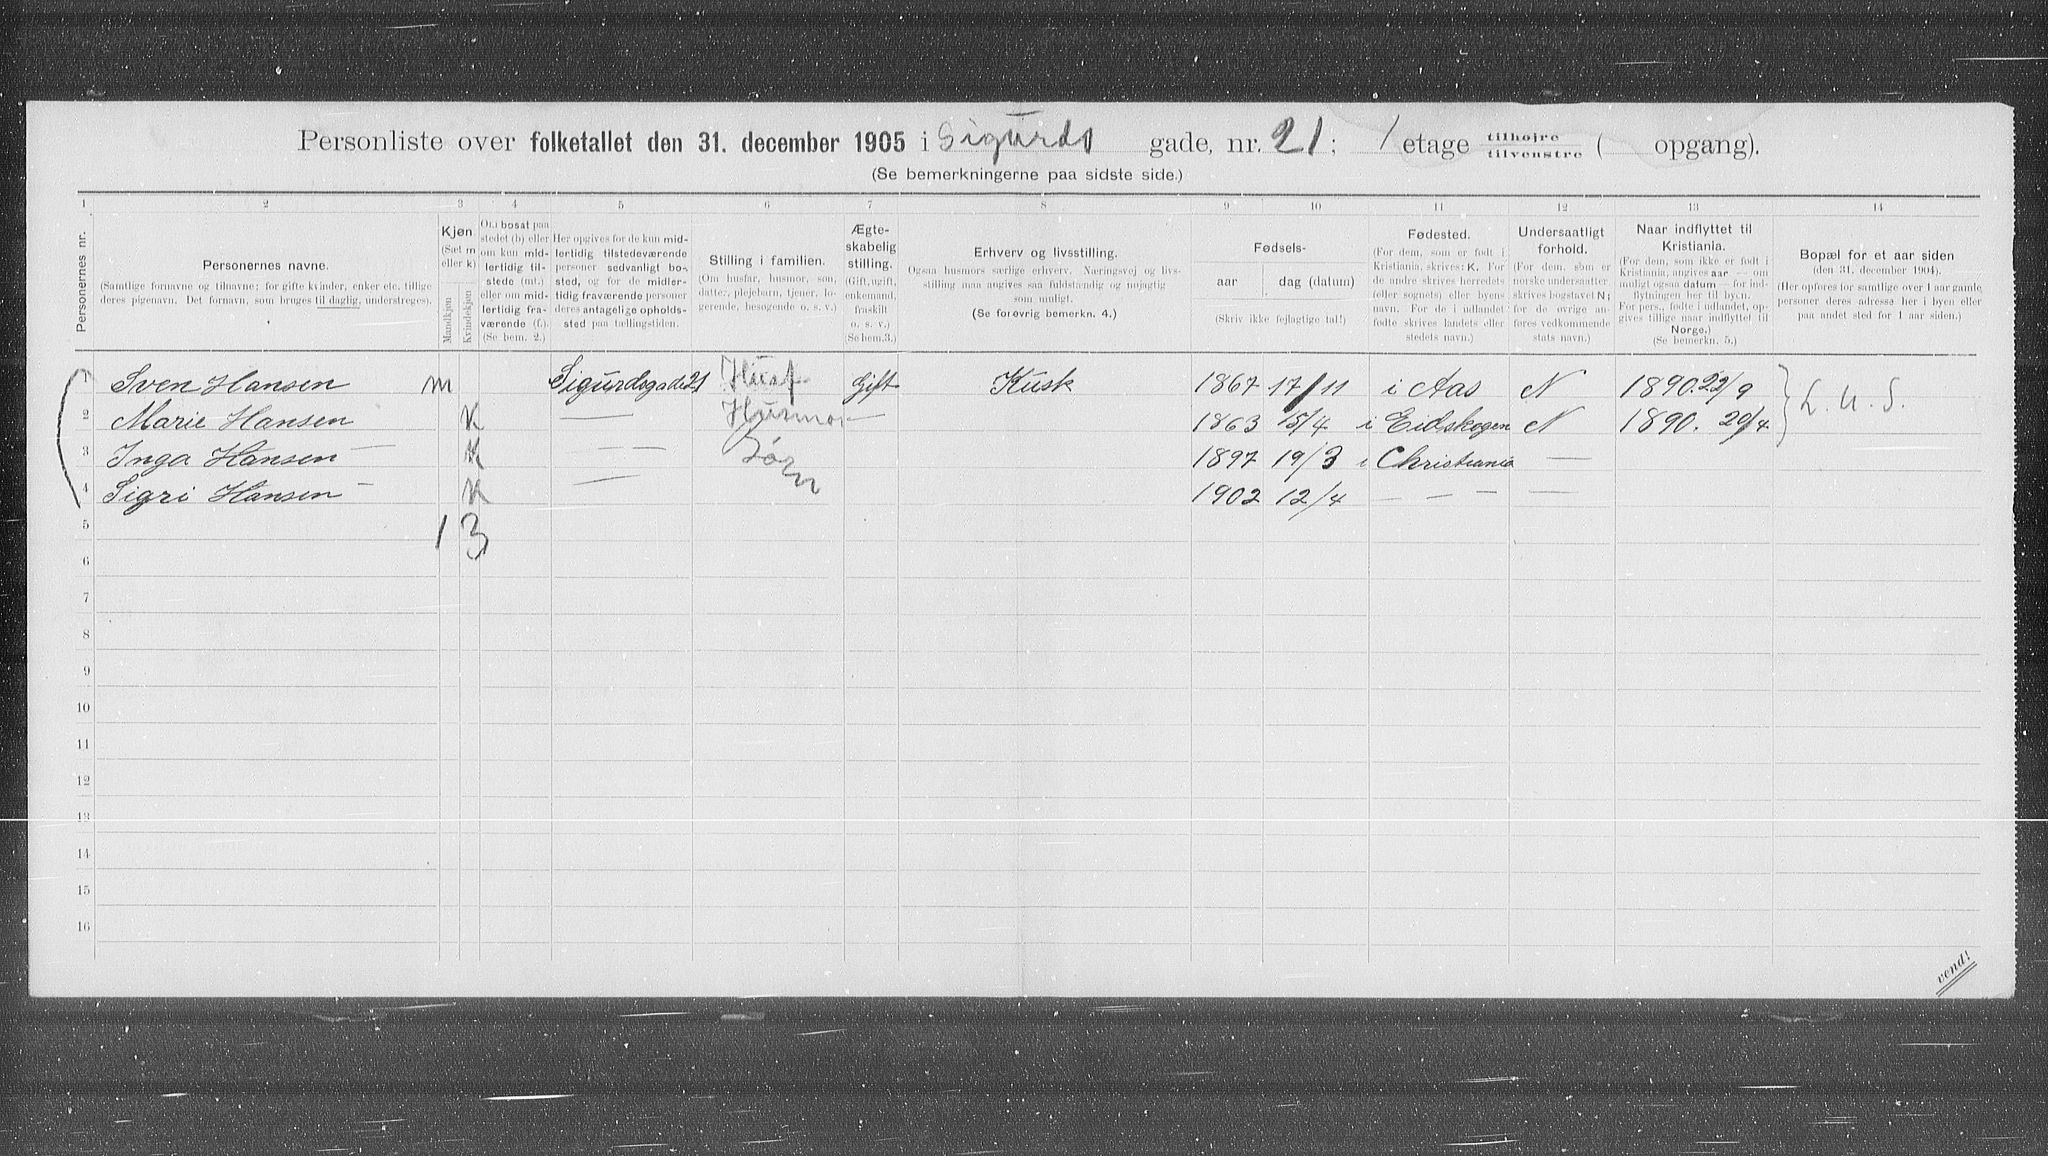 Personliste over folketallet den 31. december 1905 i Sigurds gade, nr. 21; 1 etage tilhøjre tilvenstre ( opgang).
(Se bemerkningerne paa sidste side.)
1 2 3 4 5 6 7 8 9 10 11 12 13 14
Personernes nr.
Personernes navne.
(Samtlige fornavne og tilnavne; for gifte kvinder, enker etc. tillige
deres pigenavn. Det fornavn, som bruges til daglig, understreges).
Kjøn.
(Sæt m
eller k)
Mandkjøn
Kvindekjøn
Om bosat paa
stedet (b) eller
om kun mid-
lertidig til-
stede (mt.)
eller om mid-
lertidig fra-
værende (f.).
(Se bem. 2.)
Her opgives for de kun mid-
lertidig tilstedeværende
personer sedvanligt bo-
sted, og for de midler-
tidig fraværende personer
deres antagelige opholds-
sted paa tællingstiden.
Stilling i familien.
(Om husfar, husmor, søn,
datter, plejebarn, tjener, lo-
gerende, besøgende o. s. v.)
Ægte-
skabelig
stilling.
(Gift, ugift,
enkemand,
fraskilt
o. s. v.)
(Se bem.3.)
Erhverv og livsstilling.
Ogsaa husmors særlige erhverv. Næringsvej og livs-
stilling maa angives saa fuldstændig og nøjagtig
som muligt.
(Se forøvrig bemerkn. 4.)
Fødsels-
aar dag (datum)
(Skriv ikke fejlagtige tal!)
Fødested.
(For dem, som er født i
Kristiania, skrives: K. For
de andre skrives herredets
(eller sognets) eller byens
navn. For de i udlandet
fødte skrives landets eller
stedets navn.)
Undersaatligt
forhold.
(For dem, som er
norske undersaatter,
skrives bogstavet N;
for de øvrige an-
føres vedkommende
stats navn.)
Naar indflyttet til
Kristiania.
(For dem, som ikke er født i
Kristiania, angives aar — om
muligt ogsaa datum — for ind-
flytningen her til byen.
For pers., fødte i udlandet, op-
gives tillige naar indflyttet til
Norge.)
(Se bemerkn. 5.)
Bopæl for et aar siden
(den 31. december 1904).
(Her opføres for samtlige over 1 aar gamle
personer deres adresse her i byen eller
paa andet sted for 1 aar siden.)
1 Sven Hansen m Sigurdsgade 21 Husf Gift Kusk 1867 17/11 i Aas N 1890. 22/9 L. U. S.
2 Marie Hansen K — Husmor — 1863 15/4 i Eidskogen N 1890. 20/4
3 Inga Hansen — K — — Børn 1897 19/3 i Christiania —
4 Sigri Hansen — K — 1902 12/4 — — — —
5 1 3
6
7
8
9
10
11
12
13
14
15
16
vend!